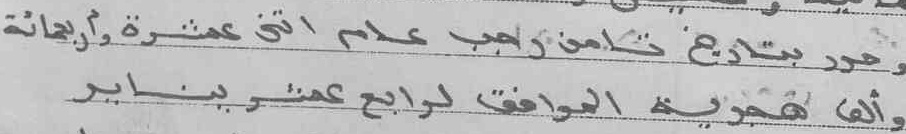 وحرر بتاريخ ثامن رجب عام اثني عشرة وأربعمائة
وألف هجرية الموافق لرابع عشر يناير